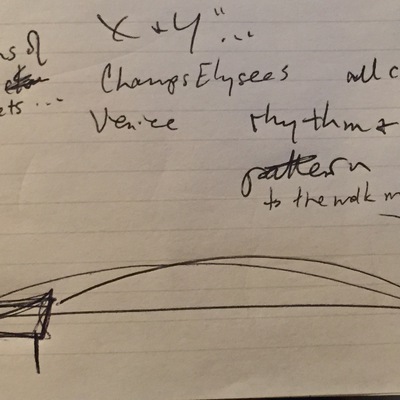 ns of X + Y" ...
ets ... ChampsElysees all c
Venice rhythm +
pattern
to the walk m